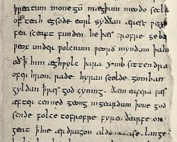 þreatum monegū mægþum meodo setla
of teah egsode eorl syððan ærest wearð
fea sceaft funden he þæs frofre geba
weox under wolcnum weorð myndum þah
oð þ him æghwylc þara ymb sittendra
ofer hron rade hyran scolde gomban
gyldan þ wæs god cyning. ðæm eafera wæs
æfter cenned geong in geardum þone god
sende folce tofrofre fyren ðearfe on
geat þ hie ær drugon aldor ase. lange